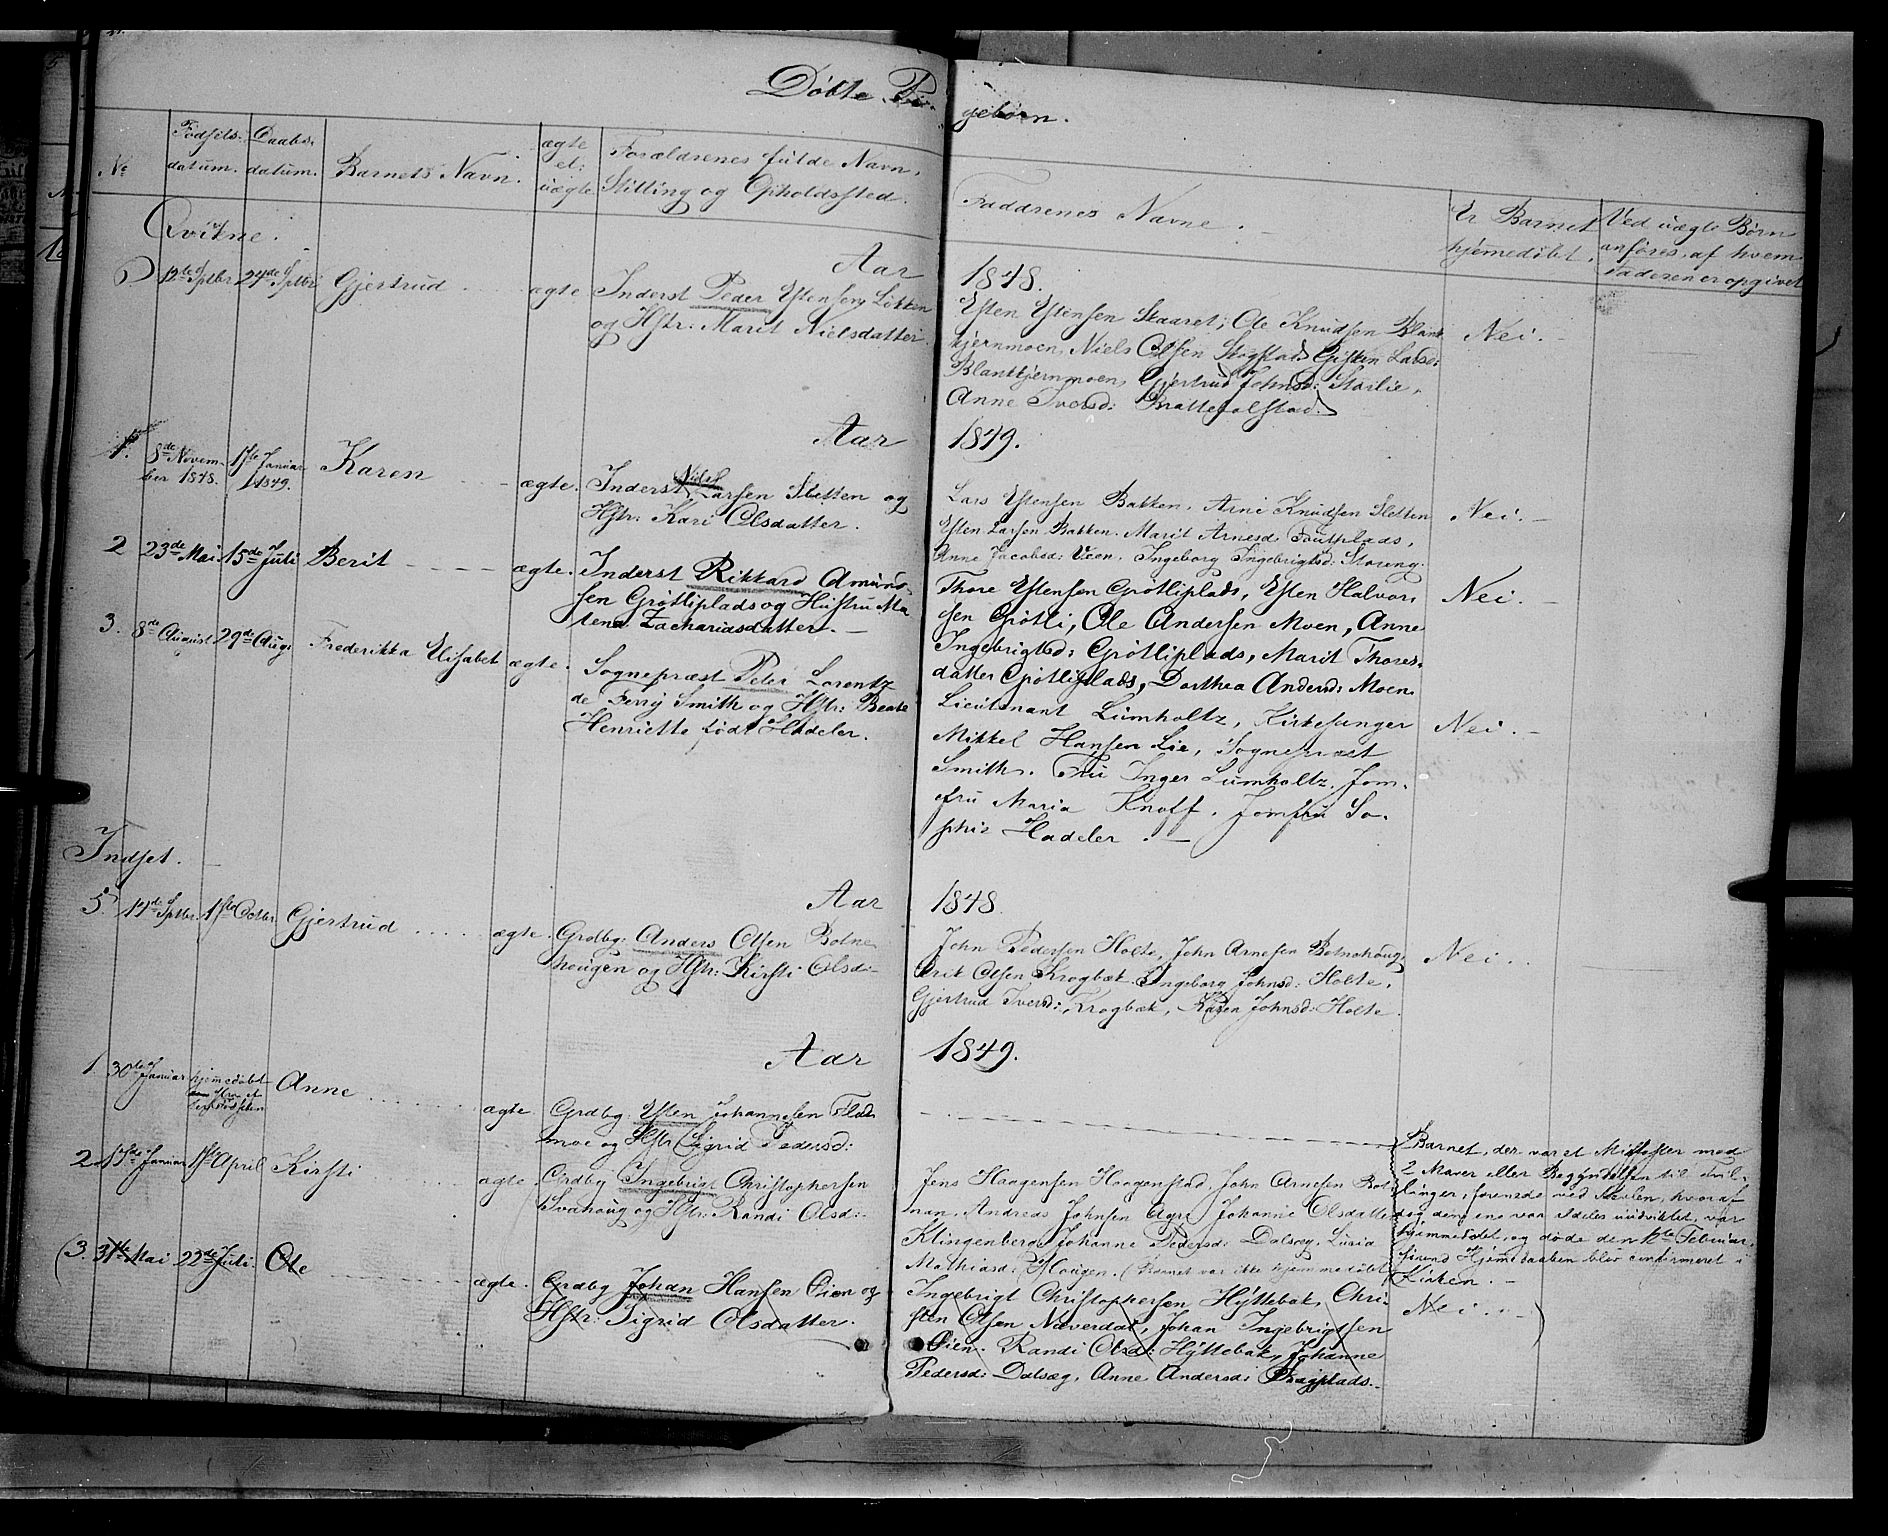 Døbte Pigebørn.
No
Fødsels-datum.
Daabs-datum.
Barnets Navn.
ægte el: uægte
Forældrenes fulde Navn,
Stilling og Opholdssted.
Faddrenes Navne.
Er Barnet
hjemmedøbt.
Ved uægte Børn
anføres, af hvem
Faderen er opgivet
Qvikne.
Aar 1848.
12te Sptbr 24de Sptbr Gjertrud ægte
Inderst Peder Estensen Løkken
og Hstr: Marit Nielsdatter.
Esten Estensen Skaaret, Ole Knudsen Blank
kjernmoen, Niels Olsen Skogstad, Gjøken Larsd:
Blankkjernmoen, Gjertrud Johnsd:
Anne Iversd:
Nei.
Aar 1849.
1. 8de Novem- 17de Januar Karen ægte.
ber 1848. 1849.
Inderst Niels Larsen Sletten og
Hstr: Kari Olsdatter.
Lars Estensen Bakken, Arne Knudsen Sletten
Esten Larsen Bakken. Marit Arnesd:
Anne Jacobsd: Veen. Ingeborg Ingebrigtsd: Storeng.
Nei.
2 23de Mai 15de Juli Berit ægte.
Inderst Rikkard Amund-
sen Grøtliplads og Hustru Ma
lena Zachariasdatter.
Thore Estensen Grøtliplads, Esten Halvor-
sen Grøtli, Ole Andersen Moen, Anne
Ingebrigtsd: Grøtliplads, Marit Thores-
datter Grøtliplads, Dorthea Andersd: Moen.
Nei.
3. 8de August 29de Aug: Frederikka Elisabet ægte.
Sognepræst Peter Lorentz
de Ferry Smith og Hstr: Beate
Henriette født Hadeler.
Lieutenant Lumholtz, Kirkesanger
Mikkel Hansen Lie, Sognepræst
Smith. Fru Inger Lumholtz. Jom-
fru Maria Knoff. Jomfru So-
phie Hadeler.
Nei.
Indset.
Aar 1848.
5. 14de Sptbr. 1ste Octbr Gjertrud ægte.
Grdbg: Anders Olsen Botne
hougen og Hstr: Kirsti Olsd:
John Pedersen Holte, John Arnesen Botnehoug,
Erik Olsen Krogbæk. Ingeborg Johnsd: Holte,
Gjertrud Iversd: Krogbæk, Karen Johnsd: Holte.
Nei.
Aar 1849.
1. 30te Januar hjemmedøbt Anne ægte.
Grdbg. Esten Johannesen Flad
moe og Hstr Sigrid Pedersd:
Barnet, der var et Misfoster med
2 Maver eller Begyndelsen til Tvil-
linger, forenede ved Navlen, hvoraf
dog den ene var ideles uudviklet, var
hjemmedøbt, og døde den 12te Februar,
førend Hjemmedaaben blev confirmeret i
Kirken.
2. Januar April Kirsti ægte
Grdbg Ingebrigt Christophersen
Svahoug og Hstr: Randi Olsd:
Jens Haagensen Haagenstad, John Arnesen Bot
nan, Andreas Johnsen Johanne Olsdatter
Klingenberg, Johanne Pedersd: Dalsæg, Lusia
Mathiasd: Hougen. (Barnet var ikke hjemmedøbt)
3. 31te Mai 22de Juli. Ole ægte.
Grdbg Johan Hansen Øien og
Hstr: Sigrid Olsdatter.
Ingebrigt Christophersen Hyttebak, Chri-
sten Olsen Næverdal, Johan Ingebrigtsen
Øien. Randi Olsd: Hyttebak, Johanne
Pedersd: Dalsæg, Anne Andersd:
Nei.